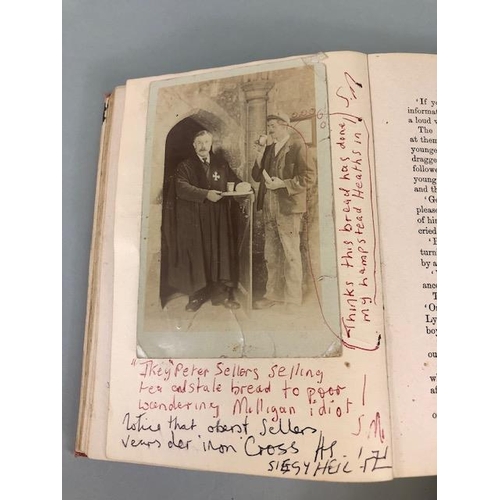 (Thinks this bread has done)
my hampstead Heaths in
"Ikey" Peter Sellers selling
tea and stale bread to poor
wandering Milligan idiot!
S.M.
Notice that oberst Sellers
vears der iron Cross
'If yo
informati
a loud v
The
at them
younge
dragge
followe
young
and th
'Ge
please
of his
cried
turn
by a
ance
T
'On
Ly
boy
our